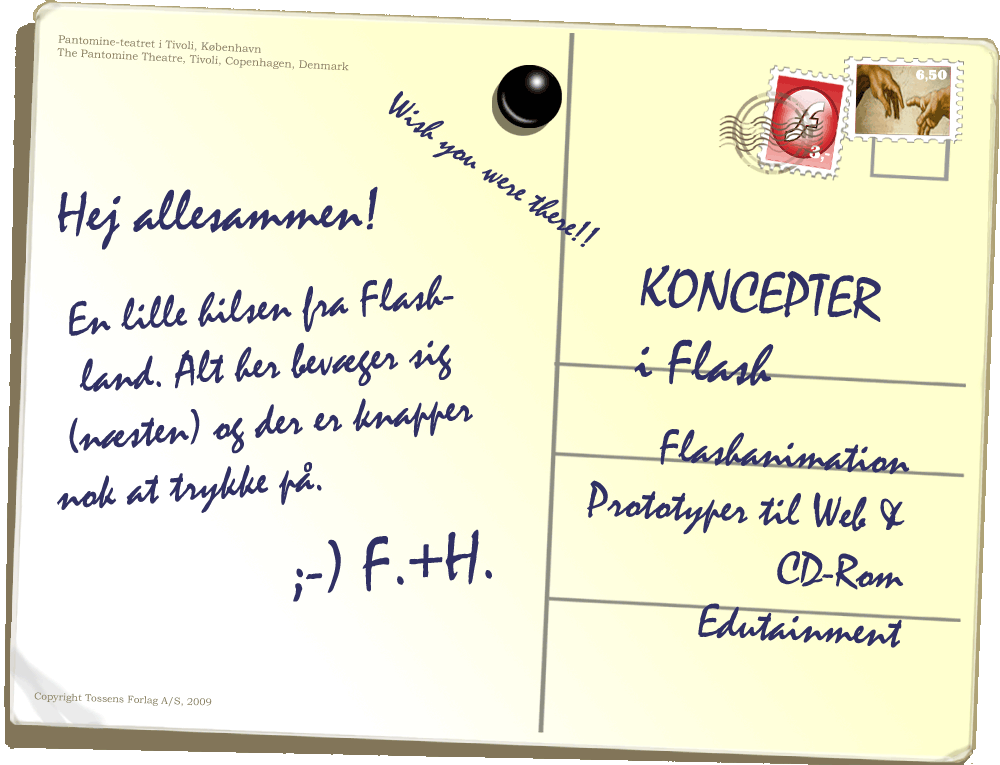 Pantomine-teatret i Tivoli, København
The Pantomine Theatre, Tivoli, Copenhagen, Denmark
Wish you were there!!
Hej allesammen!
En lille hilsen fra Flash-
land. Alt her bevæger sig
(næsten) og der er knapper
nok at trykke på.
;-) F.+H.
Copyright Tossens Forlag A/S, 2009
3,-
6,50
KONCEPTER
i Flash
Flashanimation
Prototyper til Web &
CD-Rom
Edutainment